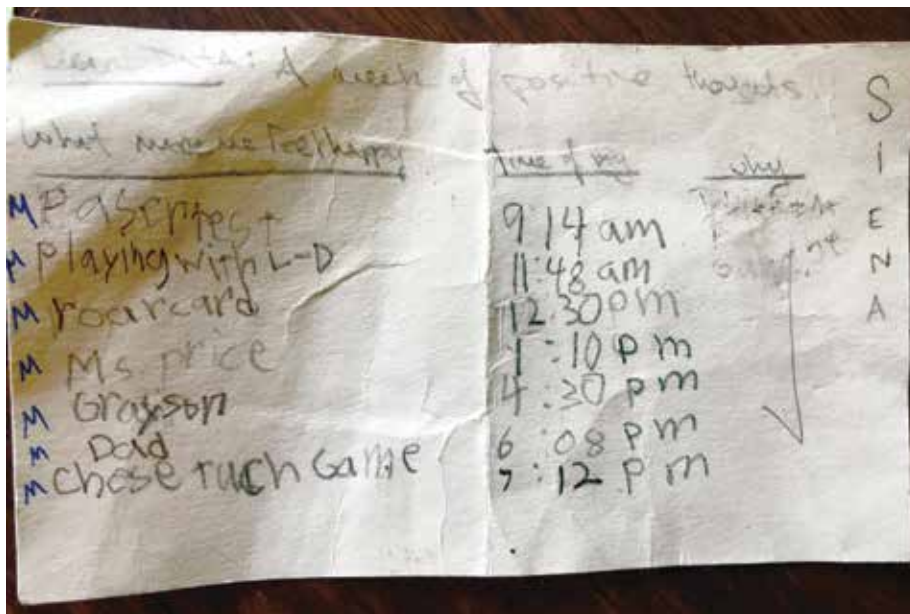 Data: A week of positive thoughts.
What me Feel happy time of day why
M playing with L-D 11:48 am
M roarcard 12:30pm
M Ms price 1:10 pm
M Grayson 4:30 pm
M Dad 6:08 pm
M Chose ruch Game 7:12 pm
9:14 am
SIENA